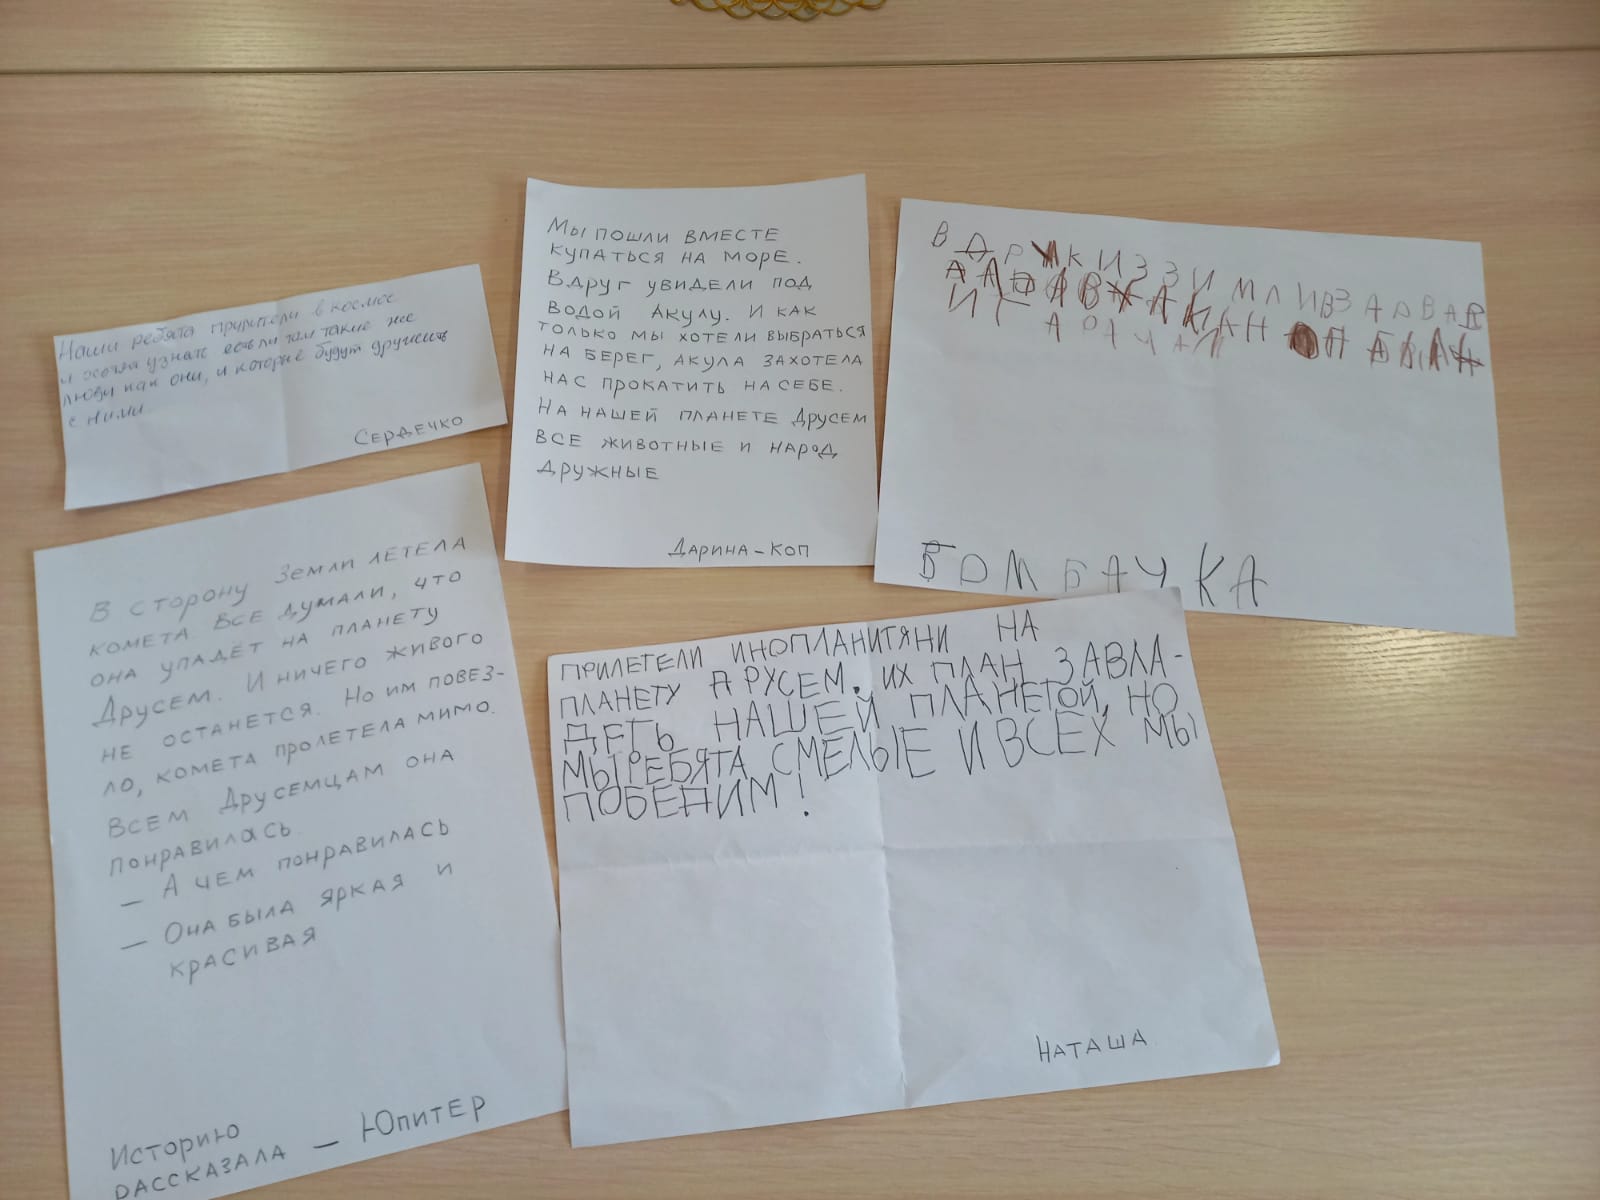 Наши ребята прилетели в космос
и хотят узнать есть ли там такие же
люди как они, и которые будут дружить
с ними
Сердечко
Мы пошли вместе
купаться на море.
Вдруг увидели под
водой Акулу. И как
только мы хотели выбраться
на берег, акула захотела
нас прокатить на себе.
На нашей планете Друсем
все животные и народ
дружные
Дарина-Коп
БОМБАЧКА
В сторону Земли летела
комета. Все думали, что
она упадёт на планету
Друсем. И ничего живого
не останется. Но им повез-
ло, комета пролетела мимо.
Всем Друсемцам она
понравилась.
— А чем понравилась
— Она была яркая и
красивая
Историю
рассказала — Юпитер
ПРИЛЕТЕЛИ ИНОПЛАНИТЯНИ НА
ПЛАНЕТУ ДРУСЕМ. ИХ ПЛАН ЗАВЛА-
ДЕТЬ НАШЕЙ ПЛАНЕТОЙ, НО
МЫ РЕБЯТА СМЕЛЫЕ И ВСЕХ МЫ
ПОБЕДИМ!
НАТАША